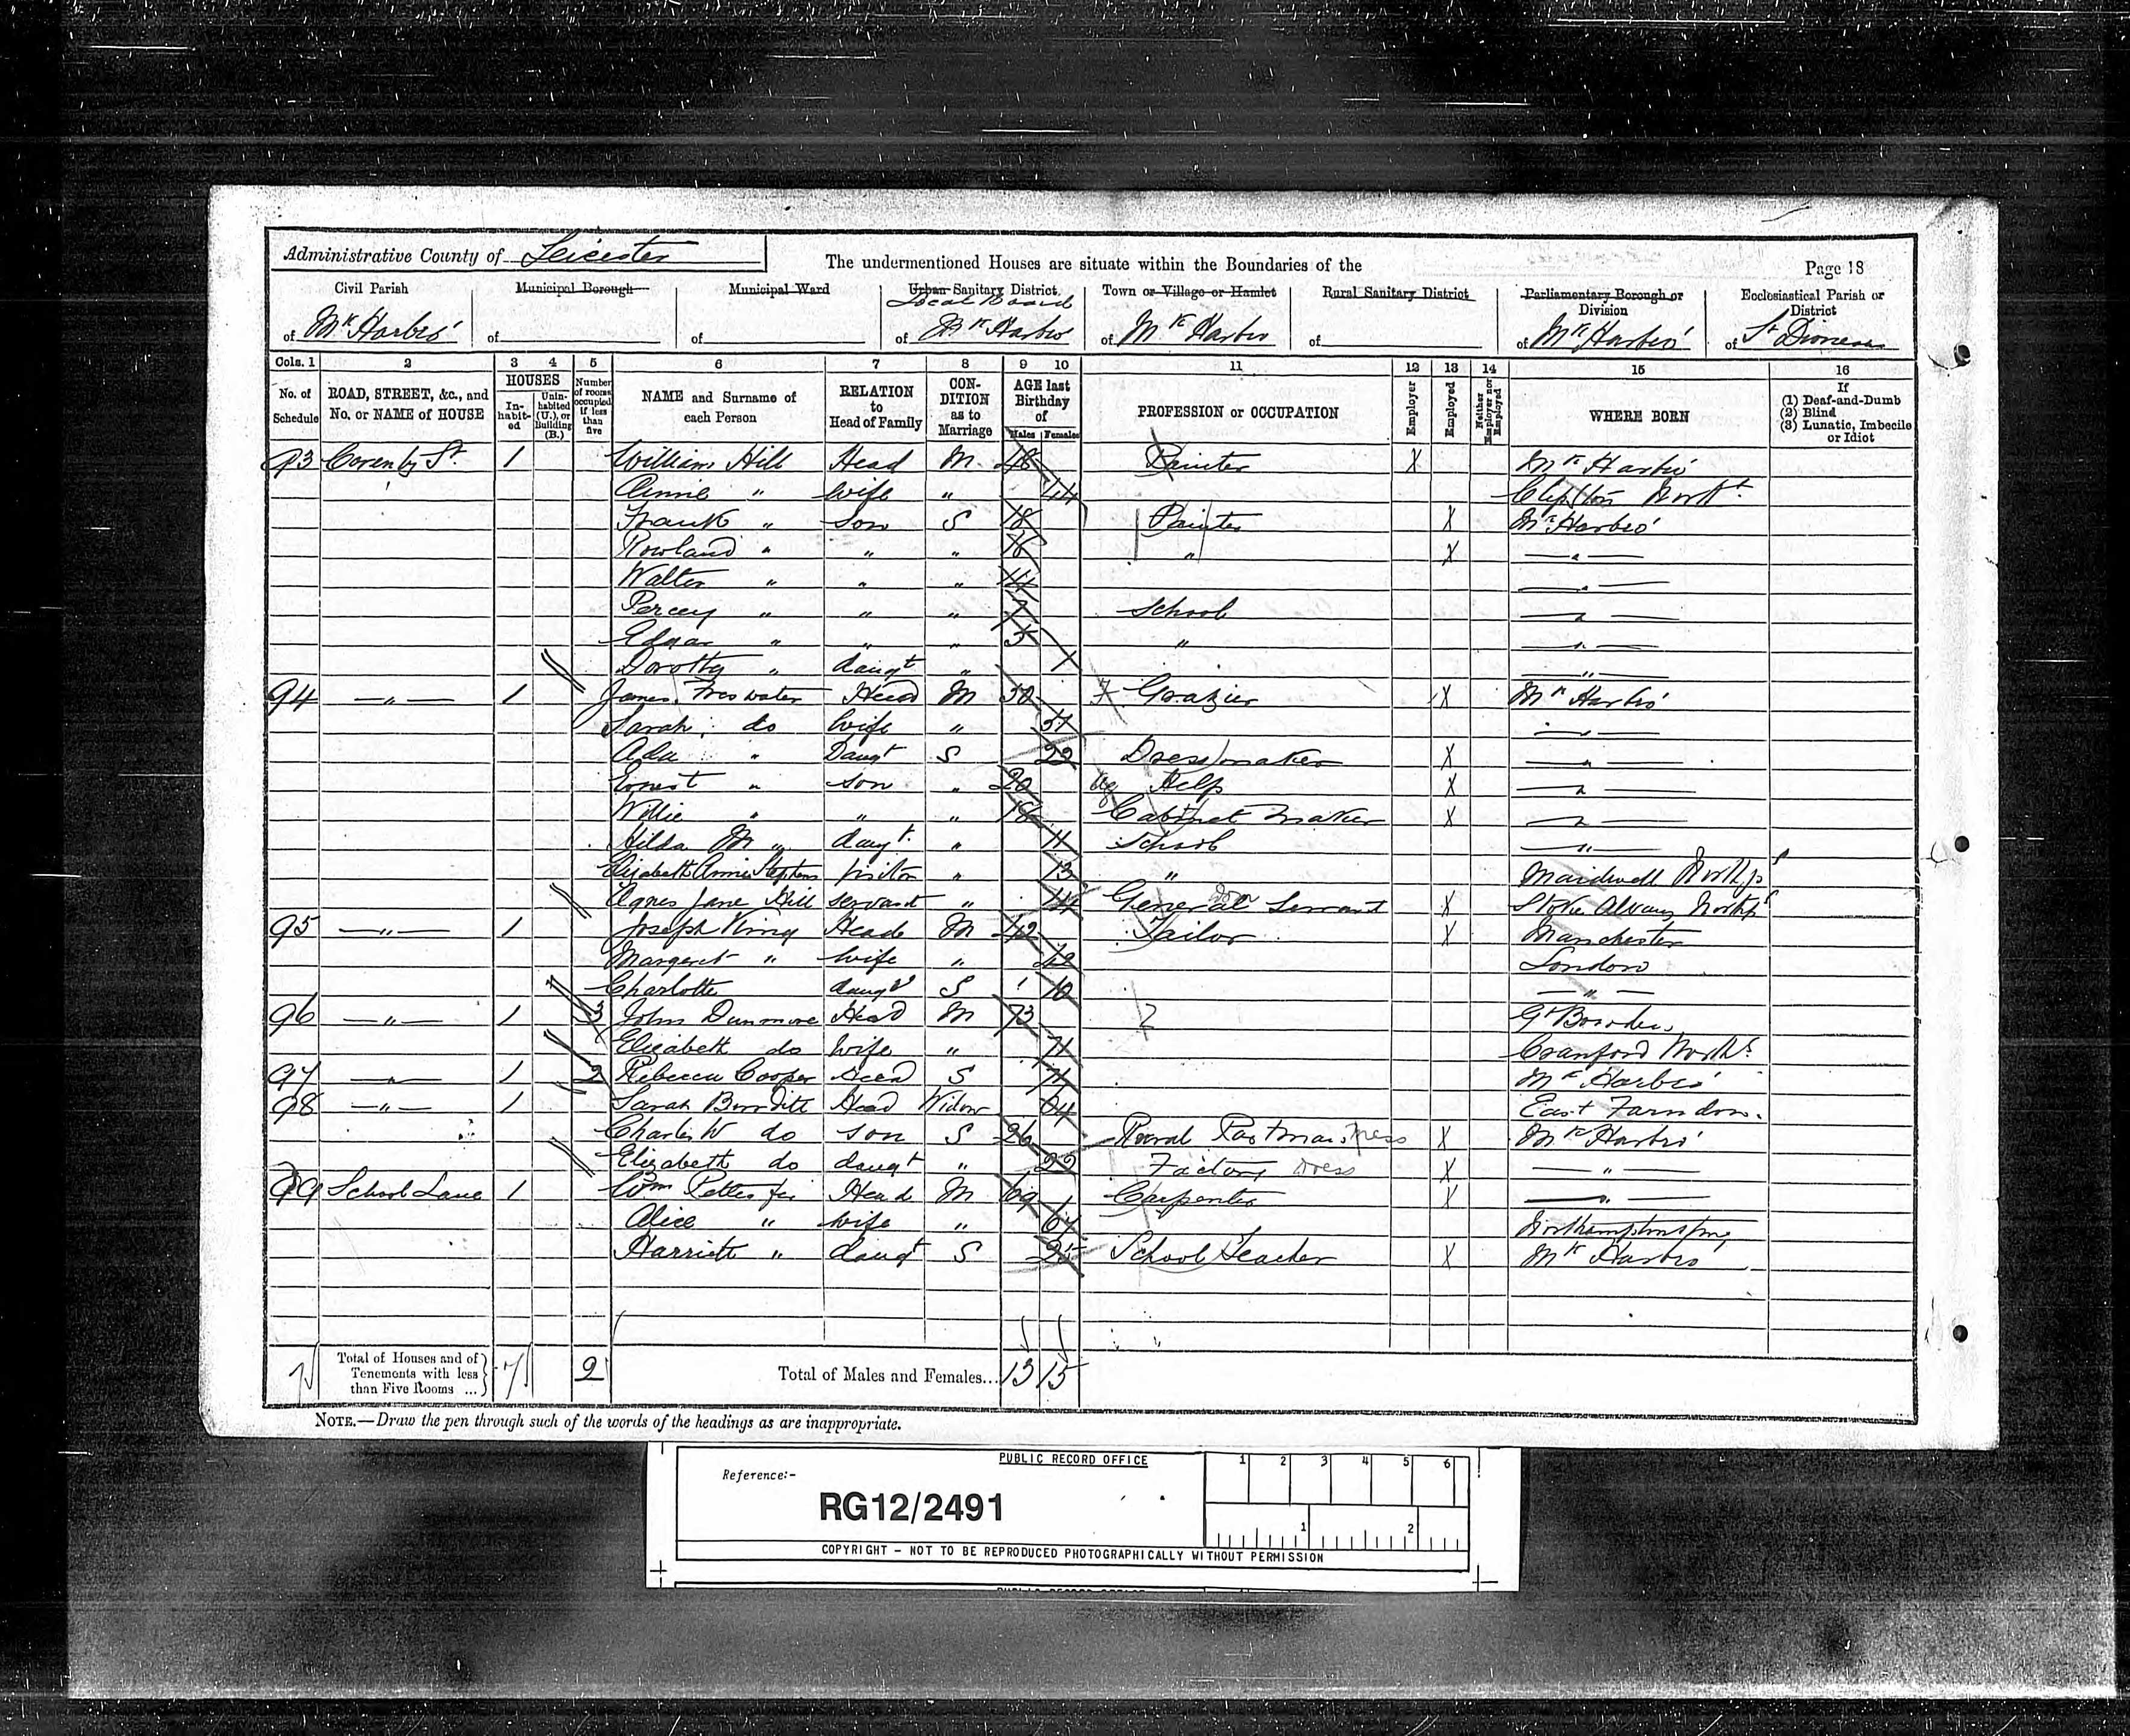 Administrative County of Leicester
The undermentioned Houses are situate within the Boundaries of the
Page 18
Civil Parish Municipal Borough Municipal Ward Urban Sanitary District Town or Village or Hamlet Rural Sanitary District Parliamentary Borough or Division Ecclesiastical Parish or District
Local Board
of Mkt Harbro' of of of Mkt Harbro of Mkt Harbro of of Mkt Harbro' of St Dionesus
Cols. 1 2 3 4 5 6 7 8 9 10 11 12 13 14 15 16
No. of Schedule ROAD, STREET, &c., and No. or NAME of HOUSE HOUSES Inhabited Uninhabited (U.), or Building (B.) Number of rooms occupied if less than five NAME and Surname of each Person RELATION to Head of Family CONDITION as to Marriage AGE last Birthday of Males Females PROFESSION or OCCUPATION Employer Employed Neither Employer nor Employed WHERE BORN If (1) Deaf-and-Dumb (2) Blind (3) Lunatic, Imbecile or Idiot
93 Coventry St 1 William Hill Head M 48 Painter X Mkt Harbro'
Annie " wife " 44 Clipston North
Frank " son S 18 Painter X Mkt Harbro'
Rowland " " " 16 " X "
Walter " " " 14 "
Percey " " " 7 School "
Edgar " " " 5 " "
Dorothy " daugt " 1 "
94 " 1 James Freswater Head M 50 Grazier X Mkt Harbro'
Sarah do wife " 51 "
Ada " Daugt S 22 Dressmaker X "
Ernest " son " 20 Help X "
Willie " " " 18 Cabinet maker X "
Hilda M " daugt " 11 School "
Elizabeth Annie Stephens visitor " 13 " Maidwell
Agnes Jane Hill servant " 14 General Servant X Stoke Albany
95 " 1 Joseph King Head M 42 Tailor X Manchester
Margeret " wife " 42 London
Charlotte daugt S 10 "
96 " 1 3 John Dunmore Head M 73 Gt Bowden
Elizabeth do wife " 71 Cranford
97 " 1 2 Rebecca Cooper Head S 71 Mkt Harbro'
98 " 1 Sarah Burditt Head Widow 64 East Farndon.
Charles W do son S 26 Rural Postman X Mkt Harbro'
Elizabeth do daugt " 22 Factory Dress X "
99 School Lane 1 Wm Pettifer Head M 69 Carpenter X "
Alice " wife " 67 Northamptonshire
Harriett " daugt S 25 School Teacher X Mkt Harbro
7 Total of Houses and of Tenements with less than Five Rooms ... 7 2 Total of Males and Females... 13 15
NOTE.—Draw the pen through such of the words of the headings as are inappropriate.
PUBLIC RECORD OFFICE
1 2 3 4 5 6
Reference:-
RG12/2491
1 2
COPYRIGHT - NOT TO BE REPRODUCED PHOTOGRAPHICALLY WITHOUT PERMISSION